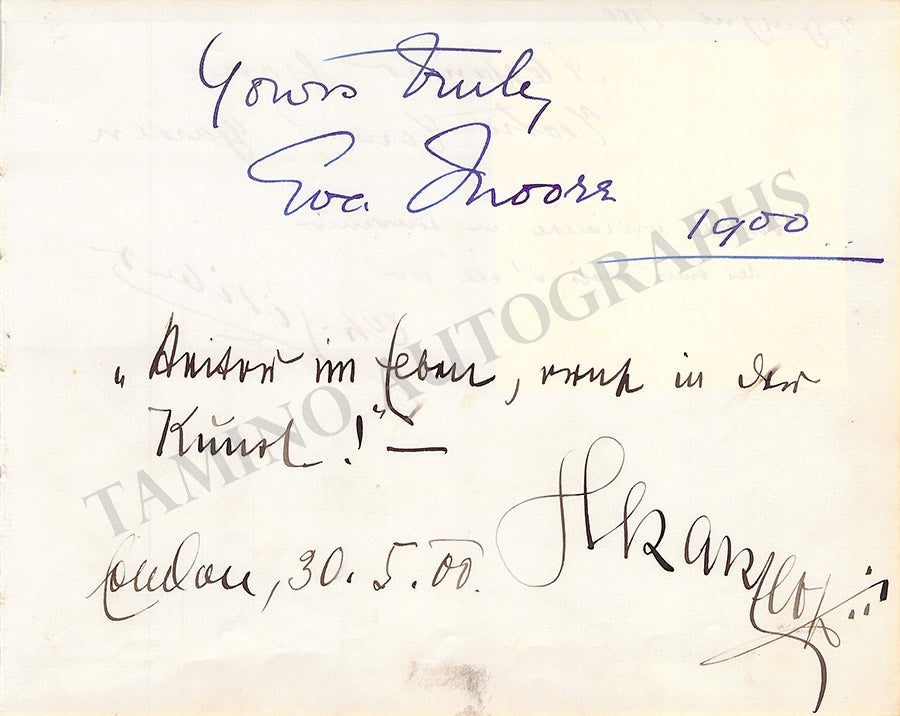 Yours truly
Eva Moore
1900
„Heiter im Leben, ernst in der
Kunst!" —
London, 30. 5. 00.
TAMINO AUTOGRAPHS